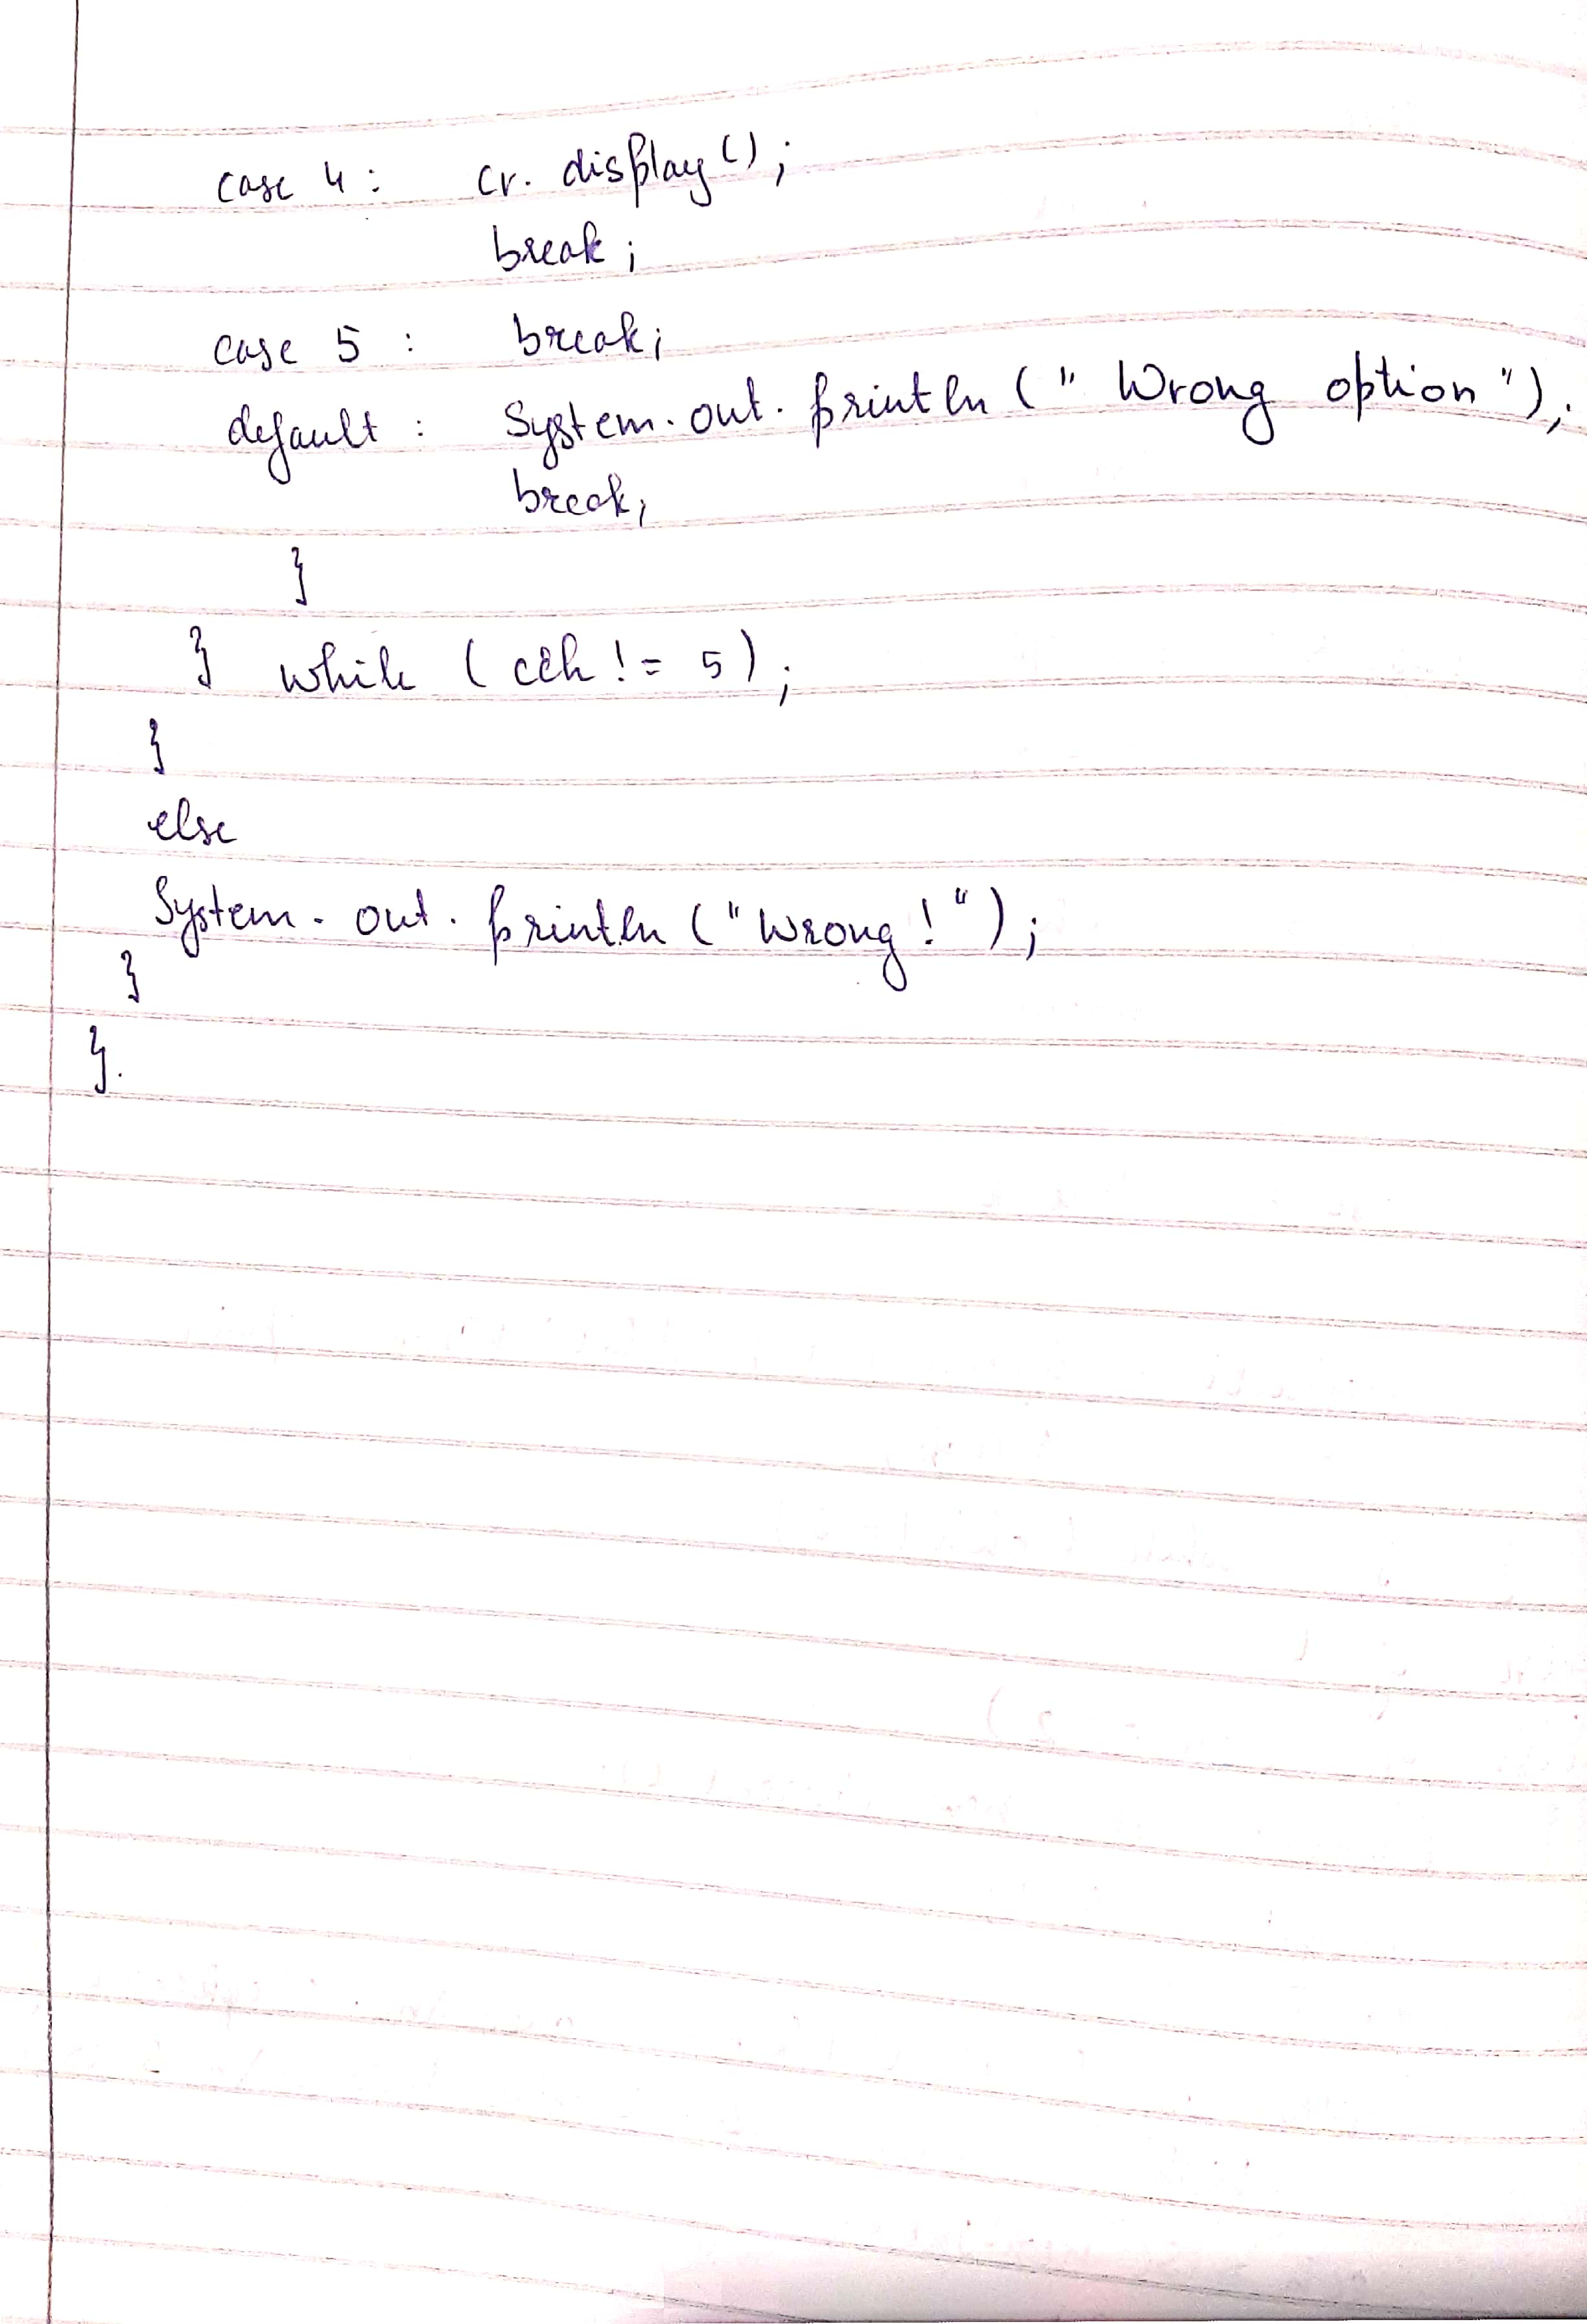 case 4 : cr. display();
break;
case 5 : break;
default : System.out.println(" Wrong option");
break;
}
} while ( cch != 5);
}
else
System.out.println("Wrong!");
}
}.